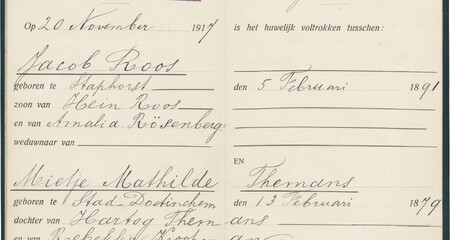 Op 20 November 1917 is het huwelijk voltrokken tusschen:
Jacob Roos
geboren te Staphorst den 5 Februari 1891
zoon van Hein Roos
en van Amalia Rösenberg
weduwnaar van
EN
Mietje Mathilde Themans
geboren te Stad-Doetinchem den 13 Februari 1879
dochter van Hartog Themans
en van Rebekka